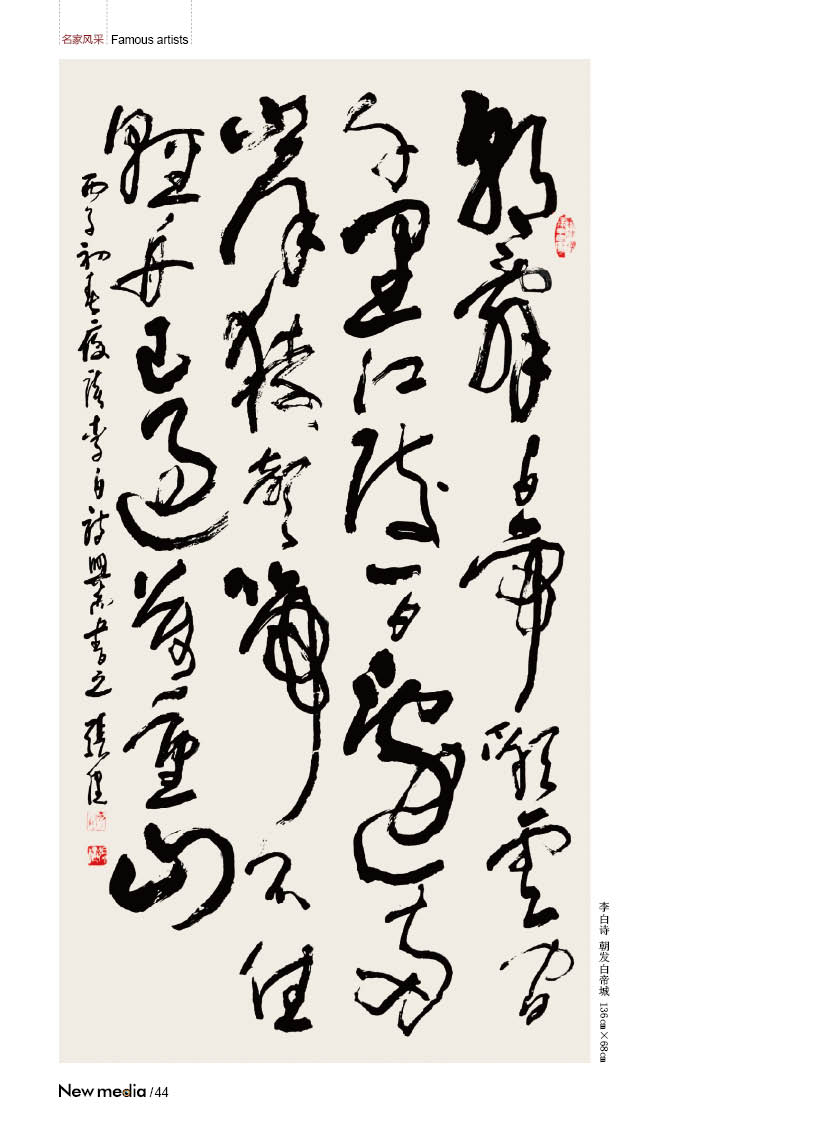 名家风采 Famous artists
朝辭白帝彩雲間
千里江陵一日還兩
岸猿聲啼不住
輕舟已過萬重山
丙子初春夜讀李白詩興而書之 張
李白诗 朝发白帝城 136㎝×68㎝
New media / 44